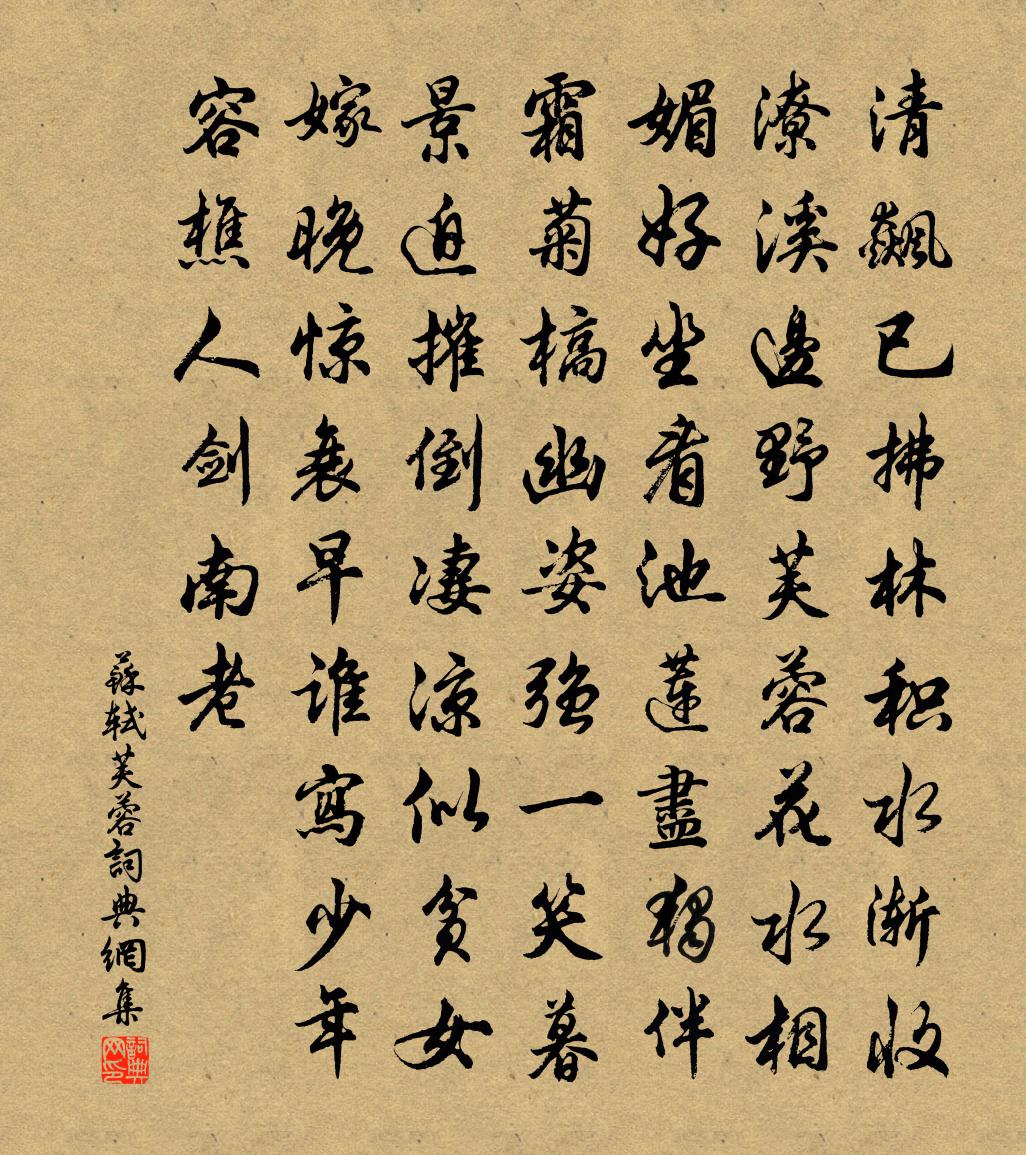 清飆已拂林积水渐收
潦溪邊野芙蓉花水相
媚好坐看池蓮盡獨伴
霜菊槁幽姿强一笑暮
景迫摧倒凄涼似贫女
嫁晚惊衰早谁寫少年
容樵人剑南老
蘇轼芙蓉詞典網集
詞典网印